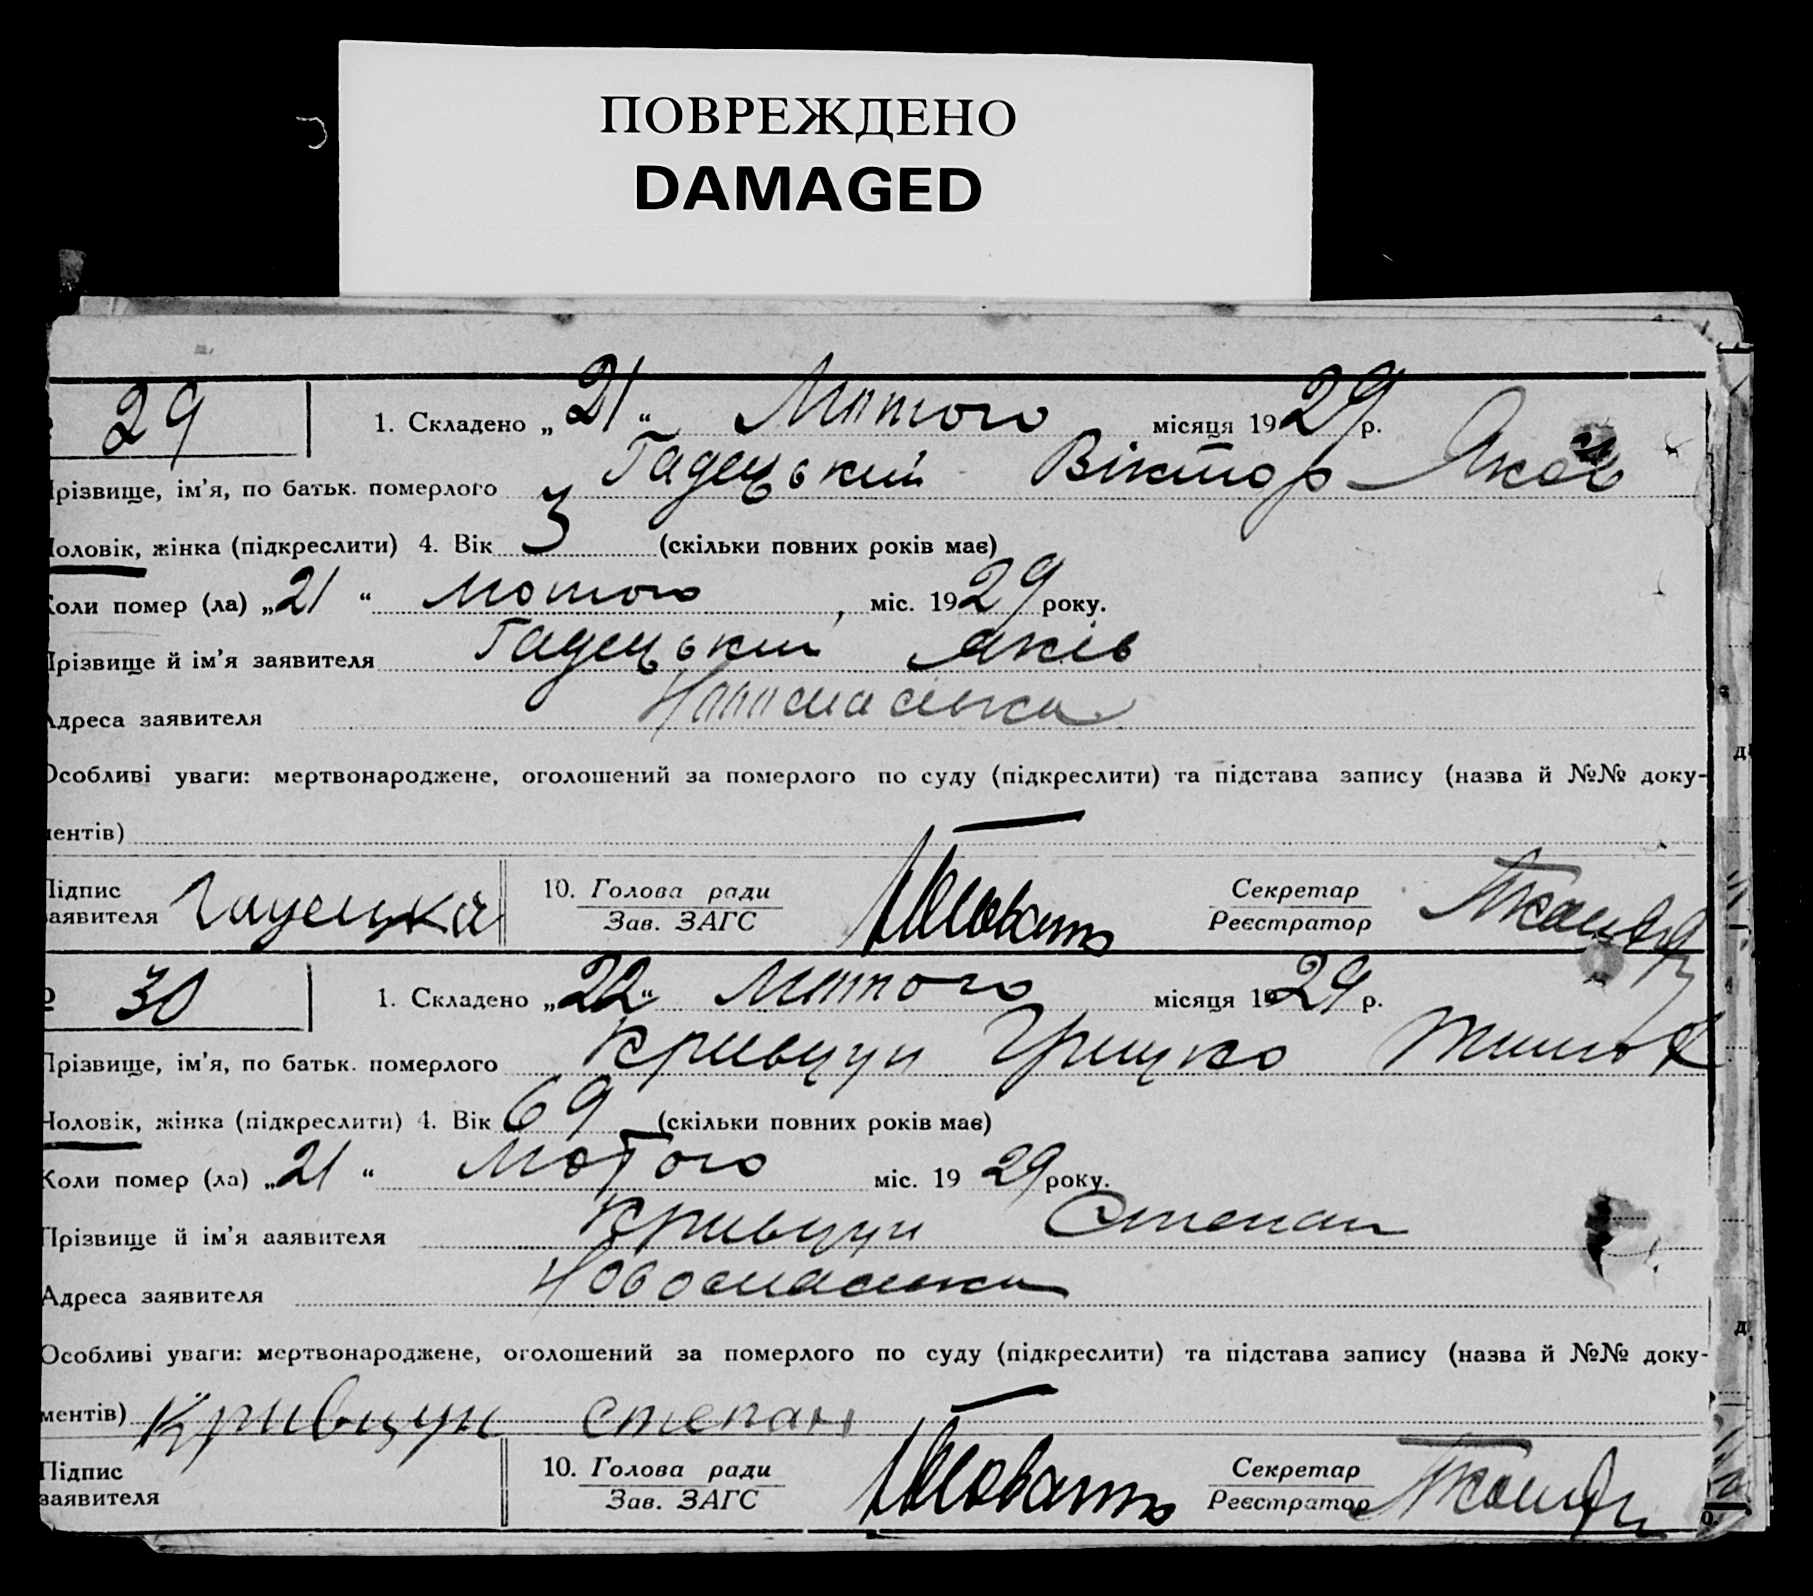 ПОВРЕЖДЕНО
DAMAGED
29 1. Складено „21“ Лютого місяця 1929 р.
прізвище, ім'я, по батьк. померлого Гадецький Віктор Яков
Чоловік, жінка (підкреслити) 4. Вік 3 (скільки повних років має)
Коли помер (ла) „21“ лютого, міс. 1929 року.
Прізвище й ім'я заявителя Гадецький Яків
Адреса заявителя
Особливі уваги: мертвонароджене, оголошений за померлого по суду (підкреслити) та підстава запису (назва й №№ доку-
ментів)
Підпис заявителя Гадецька 10. Голова ради Зав. ЗАГС Секретар Реєстратор
30 1. Складено „22“ Лютого місяця 1929 р.
Прізвище, ім'я, по батьк. померлого Кривцун Грицко Тимоф
Чоловік, жінка (підкреслити) 4. Вік 69 (скільки повних років має)
Коли помер (ла) „21“ Лютого міс. 1929 року.
Прізвище й ім'я заявителя Кривцун Степан
Адреса заявителя
Особливі уваги: мертвонароджене, оголошений за померлого по суду (підкреслити) та підстава запису (назва й №№ доку-
ментів) Кривцун степан
Підпис заявителя 10. Голова ради Зав. ЗАГС Секретар Реєстратор